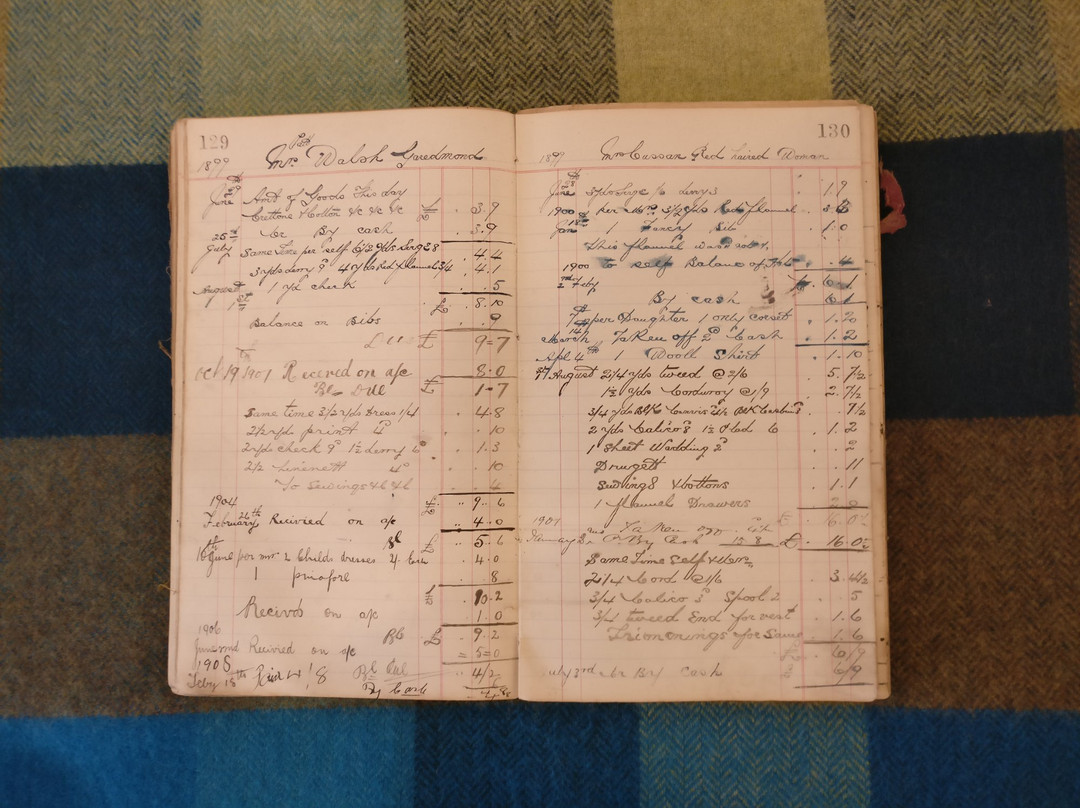 129
Pd
1899 Mr Walsh Garedmond
June Amt of Goods this day
Crettone & Cotton &c &c &c £ . 3.9
Cr By Cash . 3.9
25th July Same time per self 6 1/2 yds Serge 8 . 4.4
3 yds derry 9 4 yds Red flannel 3/4 . 4.1
August 1 yd check . . 5
1st £ . 8.10
Balance on Bibs . . 9
Due £ 9-7
Oct 19th 1901 Received on a/c 8.0
Bl Due £ 1-7
Same time 3 1/2 yds Dress 1/4 . 4.8
2 1/2 yds print 4d . . 10
2 yds check 9d 1 1/2 derry 6 . 1.3
2 1/2 4d . . 10
To Sewings . . 4
1904 £ .. 9 .. 6
February 26th Recivied on a/c .. 4.0
Bl £ .. 5 .. 6
10th June per mr 2 Childs dresses 4.0
1 pinafore . 8
£ 10.2
Recivd on a/c 1.0
1906 Bl £ . 9 2
June 2nd Recivied on a/c = 5=0
1908
Feby 18th Bl Due 4/2
By Cash
130
1899 Mrs Cussan Red haired Woman
June . 1.9
1900 per Mr 3 1/2 yds Red flannel . 3.
Jan 1 Fancy Bib . 1.0
This flannel was
1900 to self Balance of . . 4
2nd Feby 6 1
By cash 6 1
7th per Daughter 1 only corset . 1.20
14th March Taken off 2d Cash . 1.2
Apl 4th 1 Wooll Shirt . 1.10
27 August 2 1/4 yds tweed @ 2/6 . 5. 7 1/2
1 1/2 yds Corduroy @ 1/9 . 2. 7 1/2
3/4 yds Blk Canvis . . 7 1/2
2 yds Calico 8 1 1/2 Plad 6 . 1.2
1 Sheet Wadding 2d . . 2
Drugett . . 11
Sewing 8 4 bottons . 1.1
1 flannel Drawers
£ 16.0 1/2
1901 Taken off
January By Cash 15 8 £ 16.0 1/2
Same Time Self
2 1/4 Cord @ 1/6 . 3.4 1/2
3/4 Calico 3d Spool 2 . 5
3/4 tweed End for vest . 1.6
Trimmings for Same . 1.6
6/9
July 3rd Cr By Cash 6/9